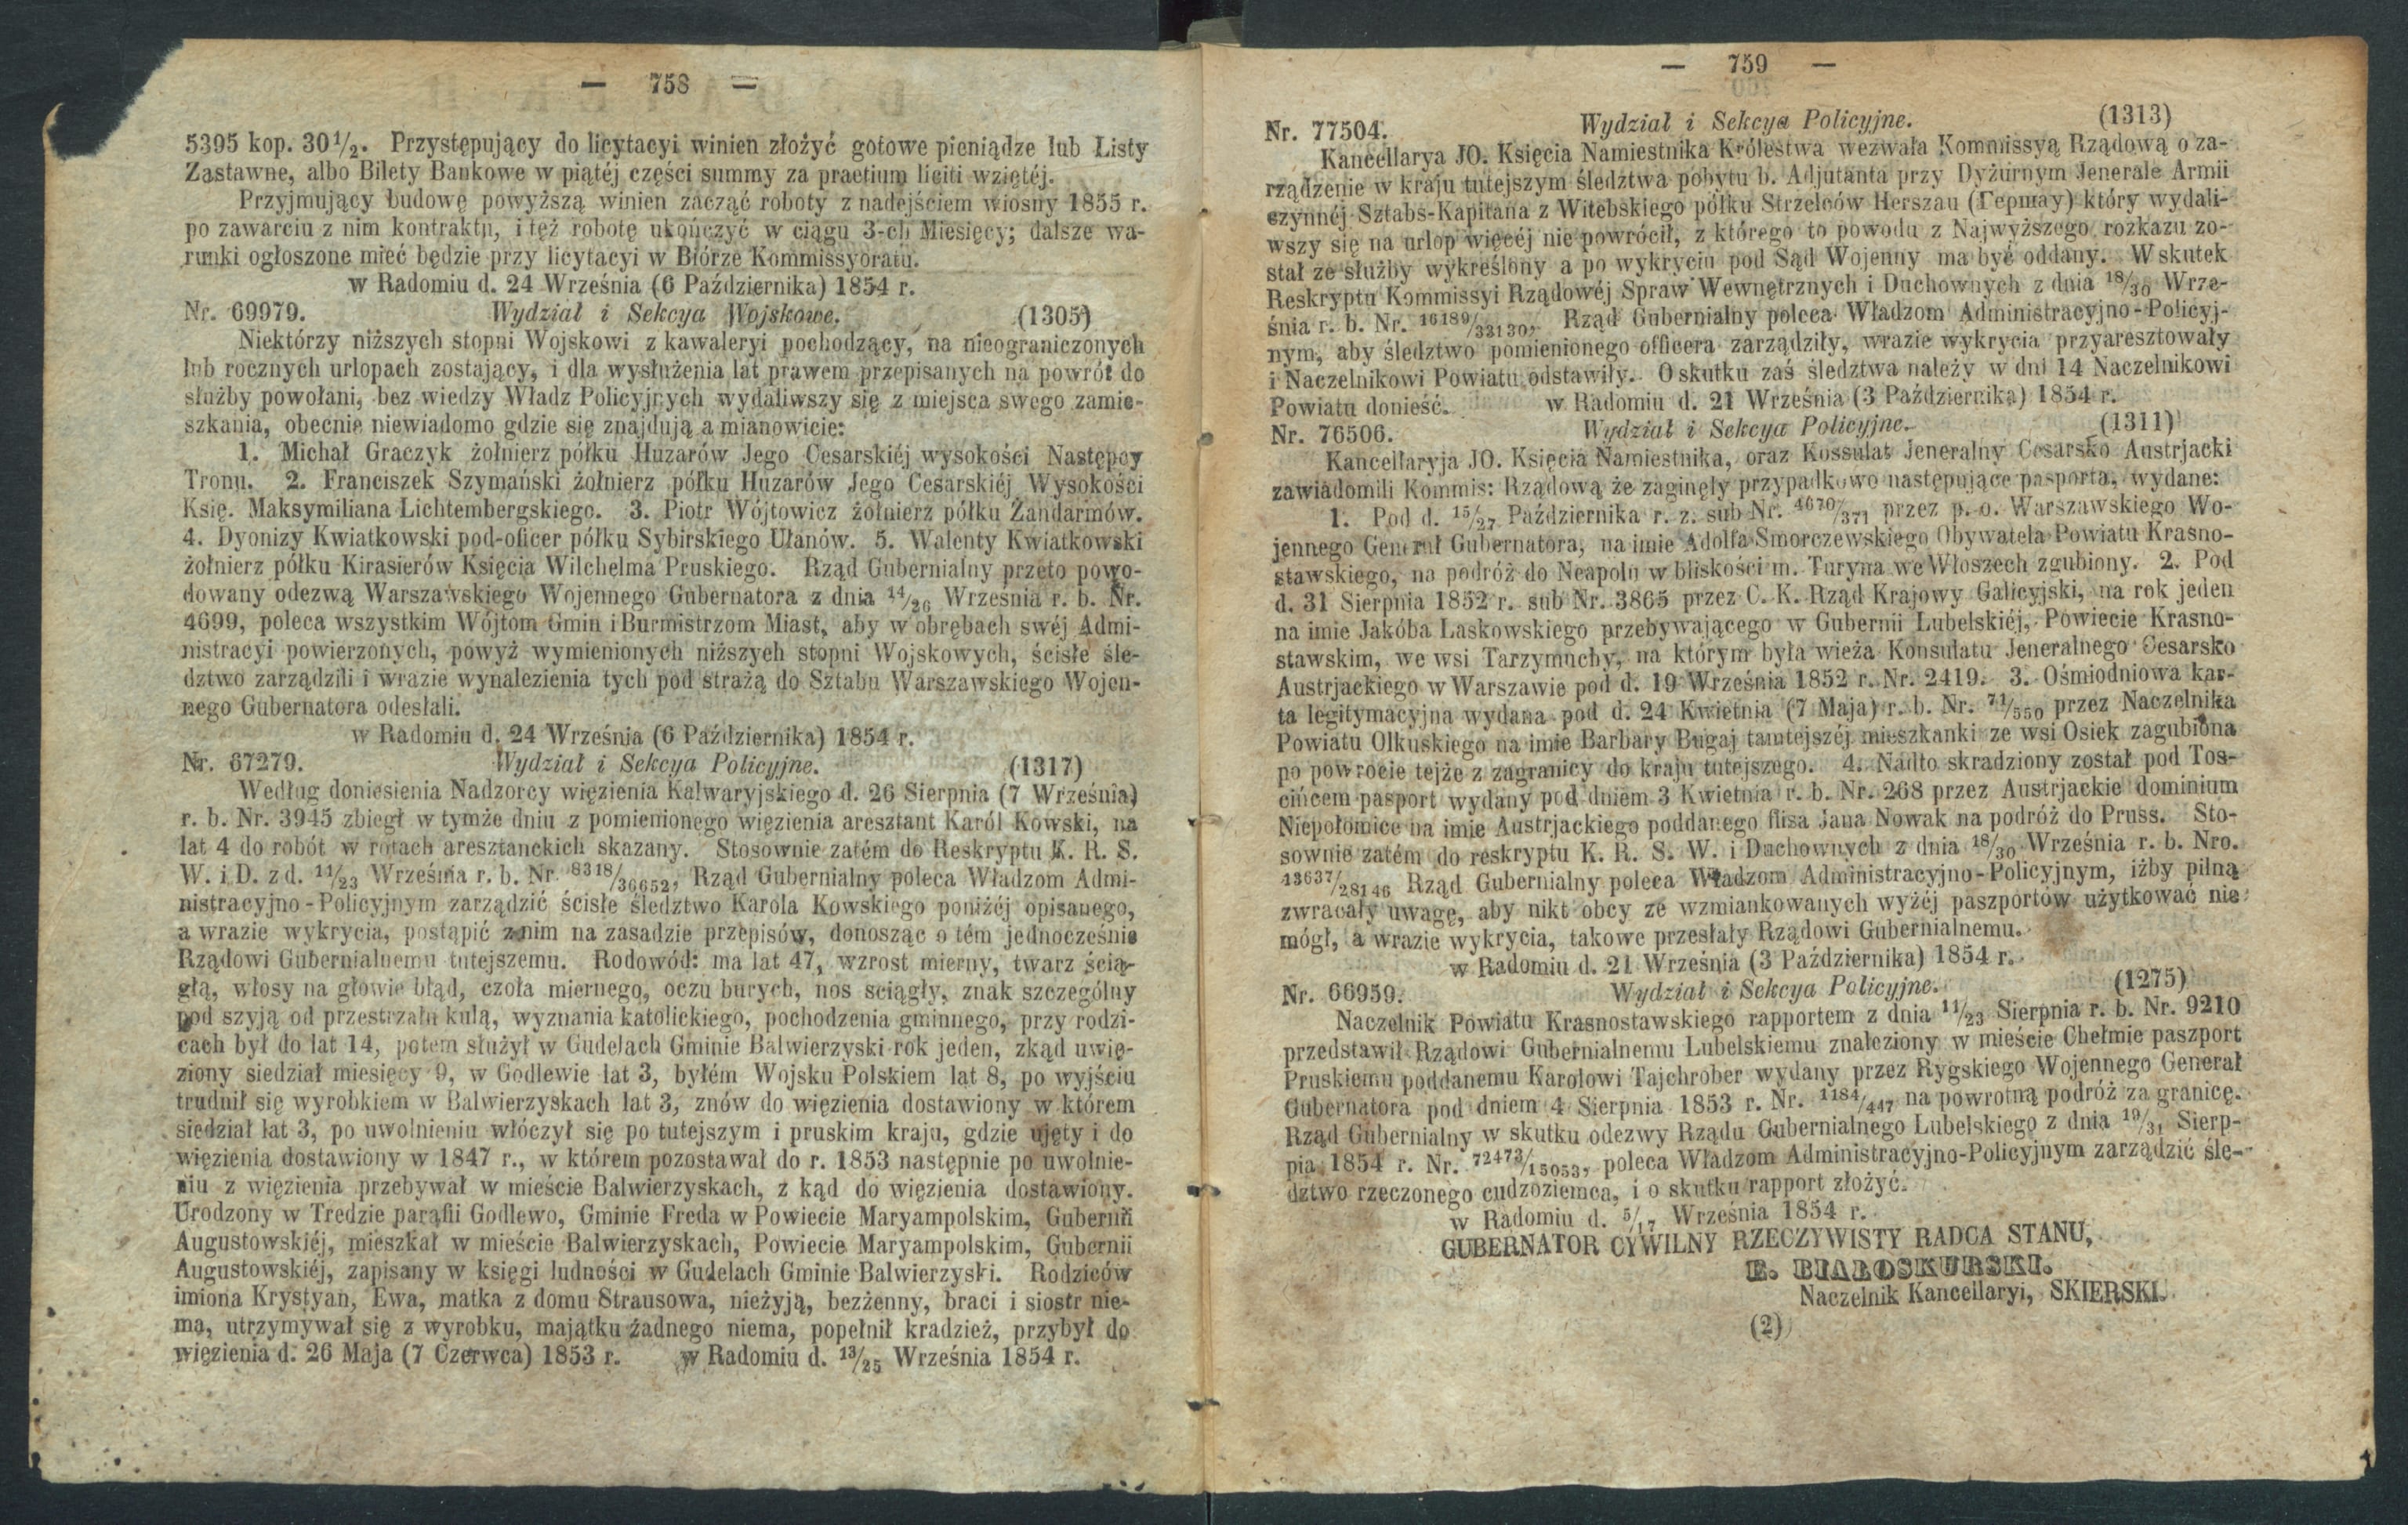 — 758 —
5395 kop. 30 1/2. Przystępujący do licytacyi winien złożyć gotowe pieniądze lub Listy
Zastawne, albo Bilety Bankowe w piątéj części summy za praetium liciti wziętéj.
Przyjmujący budowę powyższą winien zacząć roboty z nadejściem wiosny 1855 r.
po zawarciu z nim kontraktu, i też robotę ukończyć w ciągu 3-ch Miesięcy; dalsze wa-
runki ogłoszone mieć będzie przy licytacyi w Biórze Kommissyoratu.
w Radomiu d. 24 Września (6 Października) 1854 r.
Nr. 69979. Wydział i Sekcya Wojskowe. (1305)
Niektórzy niższych stopni Wojskowi z kawaleryi pochodzący, na nieograniczonych
lub rocznych urlopach zostający, i dla wysłużenia lat prawem przepisanych na powrót do
służby powołani, bez wiedzy Władz Policyjnych wydaliwszy się z miejsca swego zamie-
szkania, obecnie niewiadomo gdzie się znajdują a mianowicie:
1. Michał Graczyk żołnierz półku Huzarów Jego Cesarskiéj wysokości Następcy
Tronu. 2. Franciszek Szymański żołnierz półku Huzarów Jego Cesarskiéj Wysokości
Księ. Maksymiliana Lichtembergskiego. 3. Piotr Wójtowicz żołnierz półku Żandarmów.
4. Dyonizy Kwiatkowski pod-oficer półku Sybirskiego Ułanów. 5. Walenty Kwiatkowski
żołnierz półku Kirasierów Księcia Wilchelma Pruskiego. Rząd Gubernialny przeto powo-
dowany odezwą Warszawskiego Wojennego Gubernatora z dnia 14/26 Września r. b. Nr.
4699, poleca wszystkim Wójtom Gmin i Burmistrzom Miast, aby w obrębach swéj Admi-
nistracyi powierzonych, powyż wymienionych niższych stopni Wojskowych, ścisłe śle-
dztwo zarządzili i wrazie wynalezienia tych pod strażą do Sztabu Warszawskiego Wojen-
nego Gubernatora odesłali.
w Radomiu d. 24 Września (6 Października) 1854 r.
Nr. 67279. Wydział i Sekcya Policyjne. (1317)
Według doniesienia Nadzorcy więzienia Kalwaryjskiego d. 26 Sierpnia (7 Września)
r. b. Nr. 3945 zbiegł w tymże dniu z pomienionego więzienia aresztant Karól Kowski, na
lat 4 do robót w rotach aresztanckich skazany. Stosownie zatém do Reskryptu K. R. S.
W. i D. z d. 11/23 Września r. b. Nr. 8318/36652, Rząd Gubernialny poleca Władzom Admi-
nistracyjno-Policyjnym zarządzić ścisłe śledztwo Karola Kowskiego poniżéj opisanego,
a wrazie wykrycia, postąpić z nim na zasadzie przepisów, donosząc o tém jednocześnie
Rządowi Gubernialnemu tutejszemu. Rodowód: ma lat 47, wzrost mierny, twarz ścią-
głą, włosy na głowie błąd, czoła miernego, oczu burych, nos sciągły, znak szczególny
pod szyją od przestrzału kulą, wyznania katolickiego, pochodzenia gminnego, przy rodzi-
cach był do lat 14, potem służył w Gudelach Gminie Balwierzyski rok jeden, zkąd uwię-
ziony siedział miesięcy 9, w Godlewie lat 3, byłém Wojsku Polskiem lat 8, po wyjściu
trudnił się wyrobkiem w Balwierzyskach lat 3, znów do więzienia dostawiony w którem
siedział lat 3, po uwolnieniu włóczył się po tutejszym i pruskim kraju, gdzie ujęty i do
więzienia dostawiony w 1847 r., w którem pozostawał do r. 1853 następnie po uwolnie-
niu z więzienia przebywał w mieście Balwierzyskach, z kąd do więzienia dostawiony.
Urodzony w Tredzie parąfii Godlewo, Gminie Freda w Powiecie Maryampolskim, Gubernii
Augustowskiéj, mieszkał w mieście Balwierzyskach, Powiecie Maryampolskim, Gubernii
Augustowskiéj, zapisany w księgi ludności w Gudelach Gminie Balwierzyski. Rodziców
imiona Krystyan, Ewa, matka z domu Strausowa, nieżyją, bezżenny, braci i siostr nie-
ma, utrzymywał się z wyrobku, majątku żadnego niema, popełnił kradzież, przybył do
więzienia d. 26 Maja (7 Czerwca) 1853 r. w Radomiu d. 13/25 Września 1854 r.
— 759 —
Nr. 77504. Wydział i Sekcya Policyjne. (1313)
Kancellarya JO. Księcia Namiestnika Królestwa wezwała Kommissyą Rządową o za-
rządzenie w kraju tutejszym śledztwa pobytu b. Adjutanta przy Dyżurnym Jenerale Armii
czynnéj Sztabs-Kapitana z Witebskiego półku Strzelców Herszau (Гершау) który wydali-
wszy się na urlop więcéj nie powrócił, z którego to powodu z Najwyższego rozkazu zo-
stał ze służby wykreślony a po wykryciu pod Sąd Wojenny ma być oddany. W skutek
Reskryptu Kommissyi Rządowéj Spraw Wewnętrznych i Duchownych z dnia 18/30 Wrze-
śnia r. b. Nr. 16189/33130, Rząd Gubernialny poleca Władzom Administracyjno-Policyj-
nym, aby śledztwo pomienionego officera zarządziły, wrazie wykrycia przyaresztowały
i Naczelnikowi Powiatu odstawiły. O skutku zaś śledztwa należy w dni 14 Naczelnikowi
Powiatu donieść. w Radomiu d. 21 Września (3 Października) 1854 r.
Nr. 76506. Wydział i Sekcya Policyjne. (1311)
Kancellaryja JO. Księcia Namiestnika, oraz Kossulat Jeneralny Cesarsko Austrjacki
zawiadomili Kommis: Rządową że zaginęły przypadkowo następujące pasporta, wydane:
1. Pod d. 15/27 Października r. z. sub Nr. 4670/371 przez p. o. Warszawskiego Wo-
jennego Generał Gubernatora, na imie Adolfa Smorczewskiego Obywatela Powiatu Krasno-
stawskiego, na podróż do Neapolu w bliskości m. Turyna we Włoszech zgubiony. 2. Pod
d. 31 Sierpnia 1852 r. sub Nr. 3865 przez C. K. Rząd Krajowy Galicyjski, na rok jeden
na imie Jakóba Laskowskiego przebywającego w Gubernii Lubelskiéj, Powiecie Krasno-
stawskim, we wsi Tarzymuchy, na którym była wieża Konsulatu Jeneralnego Cesarsko
Austrjackiego w Warszawie pod d. 19 Września 1852 r. Nr. 2419. 3. Ośmiodniowa kar-
ta legitymacyjna wydana pod d. 24 Kwietnia (7 Maja) r. b. Nr. 71/550 przez Naczelnika
Powiatu Olkuskiego na imie Barbary Bugaj tamtejszéj mieszkanki ze wsi Osiek zagubiona
po powrocie tejże z zagranicy do kraju tutejszego. 4. Nadto skradziony został pod Tos-
cińcem pasport wydany pod dniem 3 Kwietnia r. b. Nr. 268 przez Austrjackie dominium
Niepołomice na imie Austrjackiego poddanego flisa Jana Nowak na podróż do Pruss. Sto-
sownie zatém do reskryptu K. R. S. W. i Duchownych z dnia 18/30 Września r. b. Nro.
13637/28146 Rząd Gubernialny poleca Władzom Administracyjno-Policyjnym, iżby pilną
zwracały uwagę, aby nikt obcy ze wzmiankowanych wyżéj paszportów użytkować nie
mógł, a wrazie wykrycia, takowe przesłały Rządowi Gubernialnemu.
w Radomiu d. 21 Września (3 Października) 1854 r.
Nr. 66959. Wydział i Sekcya Policyjne. (1275)
Naczelnik Powiatu Krasnostawskiego rapportem z dnia 11/23 Sierpnia r. b. Nr. 9210
przedstawił Rządowi Gubernialnemu Lubelskiemu znaleziony w mieście Chełmie paszport
Pruskiemu poddanemu Karolowi Tajchrober wydany przez Rygskiego Wojennego Generał
Gubernatora pod dniem 4 Sierpnia 1853 r. Nr. 1184/447 na powrotną podróż za granicę.
Rząd Gubernialny w skutku odezwy Rządu Gubernialnego Lubelskiego z dnia 19/31 Sierp-
pia 1854 r. Nr. 72473/15053, poleca Władzom Administracyjno-Policyjnym zarządzić śle-
dztwo rzeczonego cudzoziemca, i o skutku rapport złożyć.
w Radomiu d. 5/17 Września 1854 r.
GUBERNATOR CYWILNY RZECZYWISTY RADCA STANU,
E. BIAŁOSKURSKI.
Naczelnik Kancellaryi, SKIERSKI.
(2)